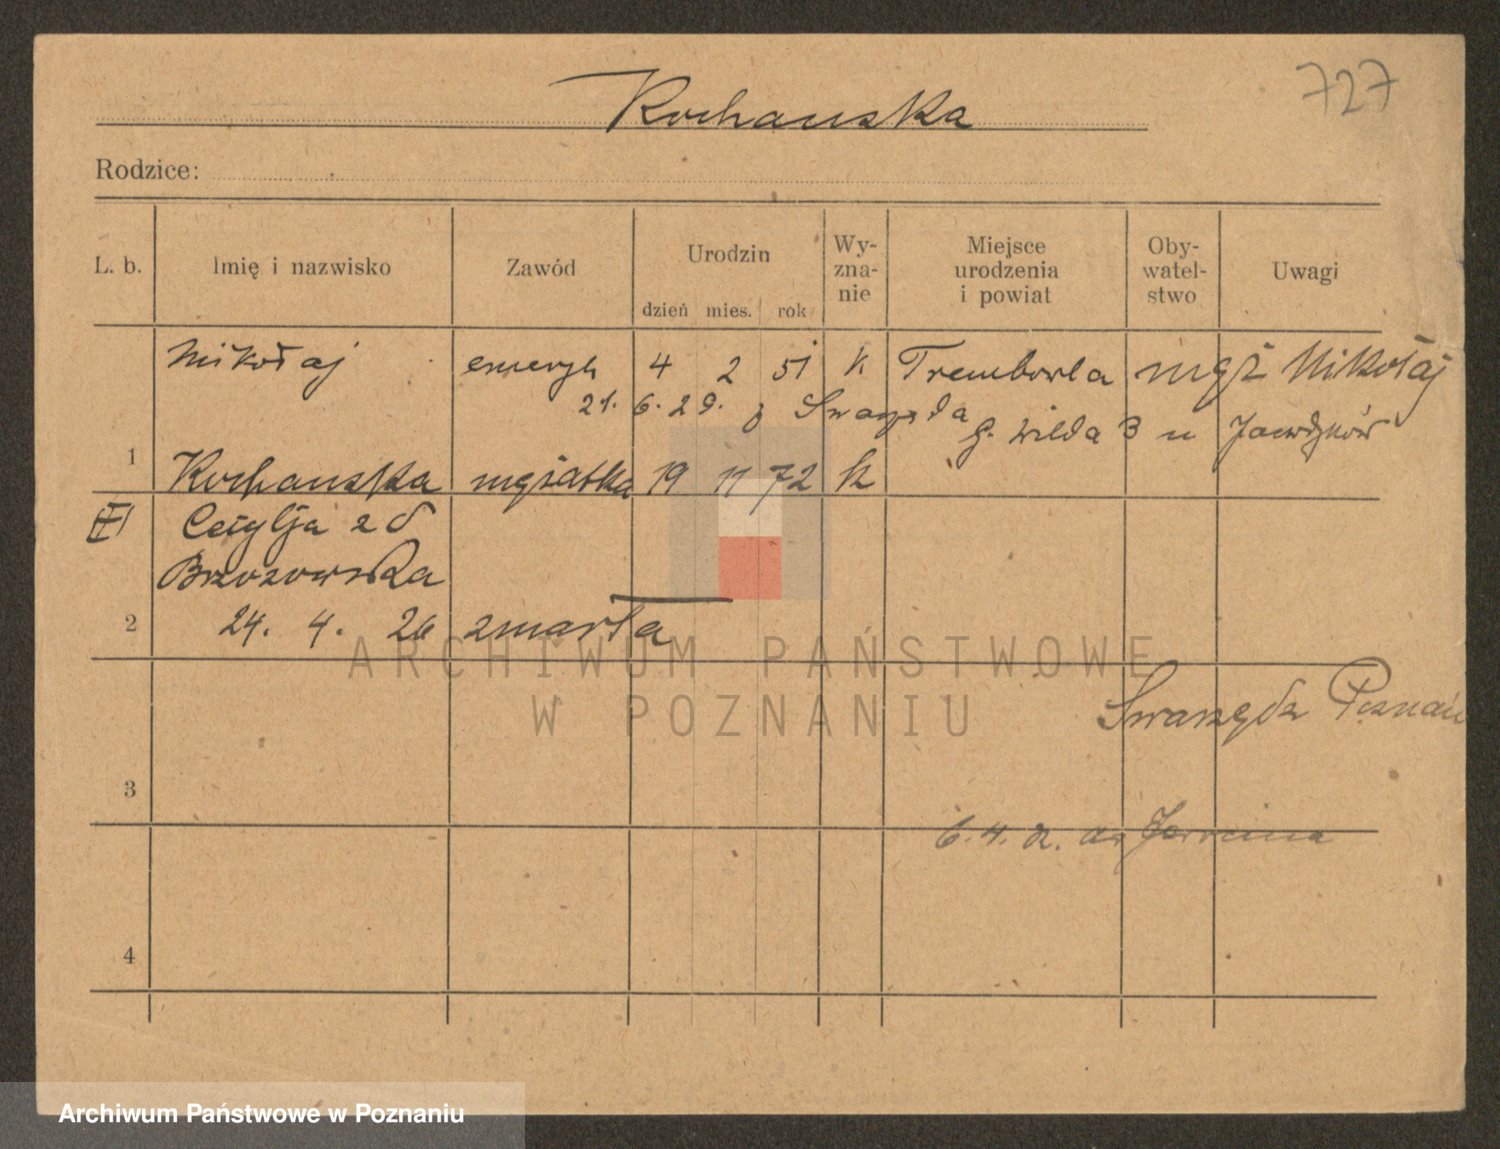 727
Kochanska
Rodzice:
L. b. Imię i nazwisko Zawód Urodzin Wy-zna-nie Miejsce urodzenia i powiat Oby-watel-stwo Uwagi
dzień mies. rok
Mikołaj emeryt 4 2 51 k Trembowla mąż Mikołaj
21. 6. 29. z Swarzęda
G. Wilda 3 u
1 Kochanska mężatka 19 11 72 k
Cecylja z d
Brzozowska
2 24. 4. 26 zmarła
ARCHIWUM PAŃSTWOWE
W POZNANIU
Swarzędz Poznań
3
6. 4. do Jarocina
4
Archiwum Państwowe w Poznaniu